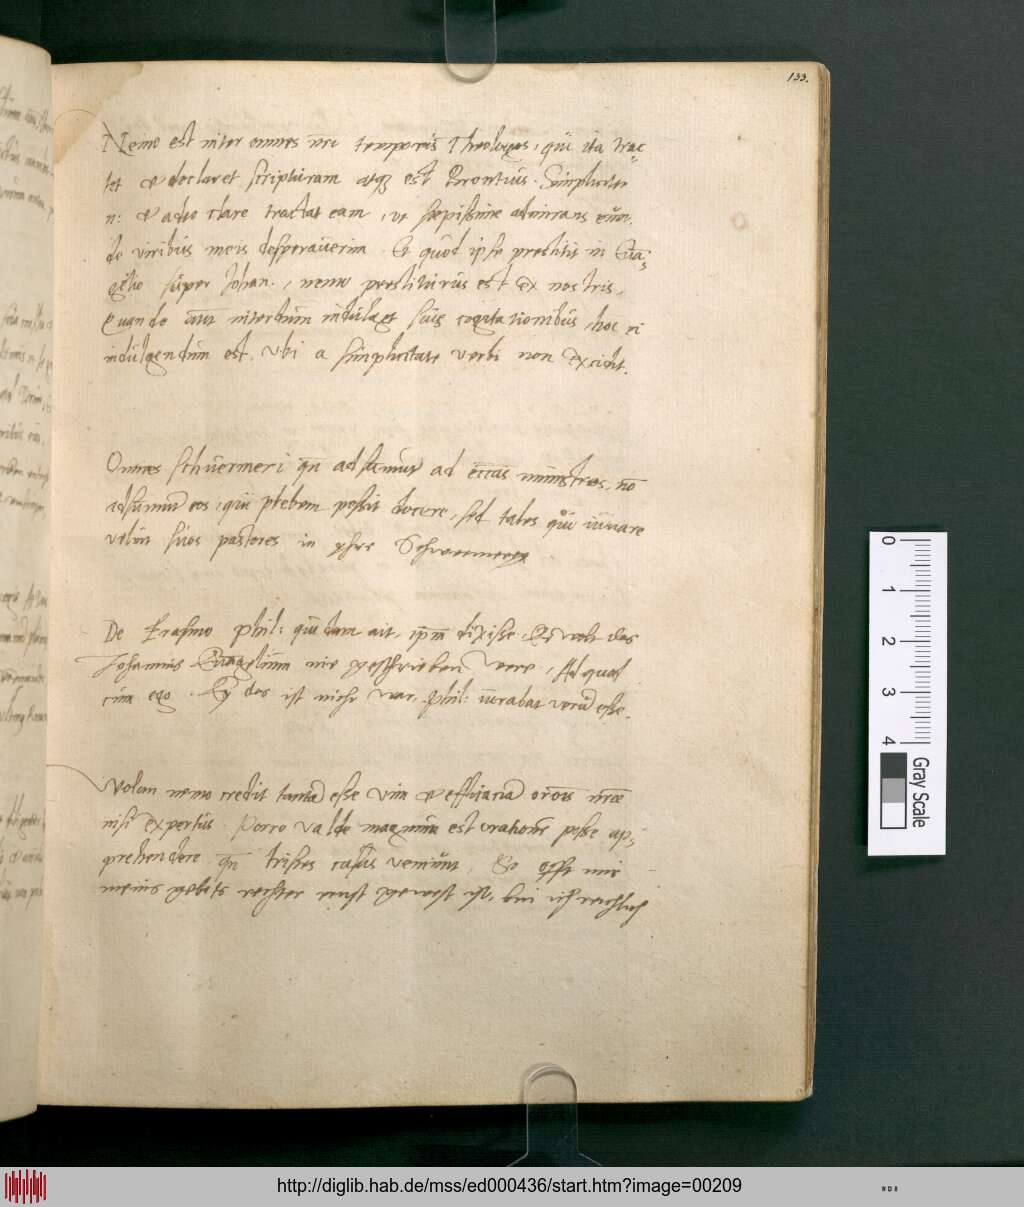 133.
Nemo est inter omnes nri temporis Theologos, qui ita trac-
tet & declaret scripturam atq; est Brentius. Simpliciter
n: & adeo clare tractat eam, ut sæpissime admirans eum
de viribus meis desperaverim. Et quod ipse prestitit in Eua-
gelio super Johan:, nemo prestiturus est ex nostris,
Quando aut interdum indulget suis cogitationibus, hoc ei
indulgendum est, ubi a simplicitate verbi non excidit.
Omnes schuermeri qn adsumunt ad ecctias ministros, no
adsumunt eos, qui plebem possit docere, sed tales qui iuuare
velint suos pastores in yhre Schwermerey
De Erasmo Phil: quidam ait, ipm dixisse, Er wolt das
Johannis Euagelium nie geschrieben were, Ad quod
cum ego. Ey das ist nicht war, Phil: iurabat verū esse.
nemo credit tantā esse vim & efficaciā orōis nrae
nisi expertus. Porro valde magnum est orationē posse ap-
prehendere, qn tristes casus veniūnt, So offt mir
meins gebets rechter ernst gewest ist, bin ich reichlich
0
1
2
3
4
Gray Scale
http://diglib.hab.de/mss/ed000436/start.htm?image=00209